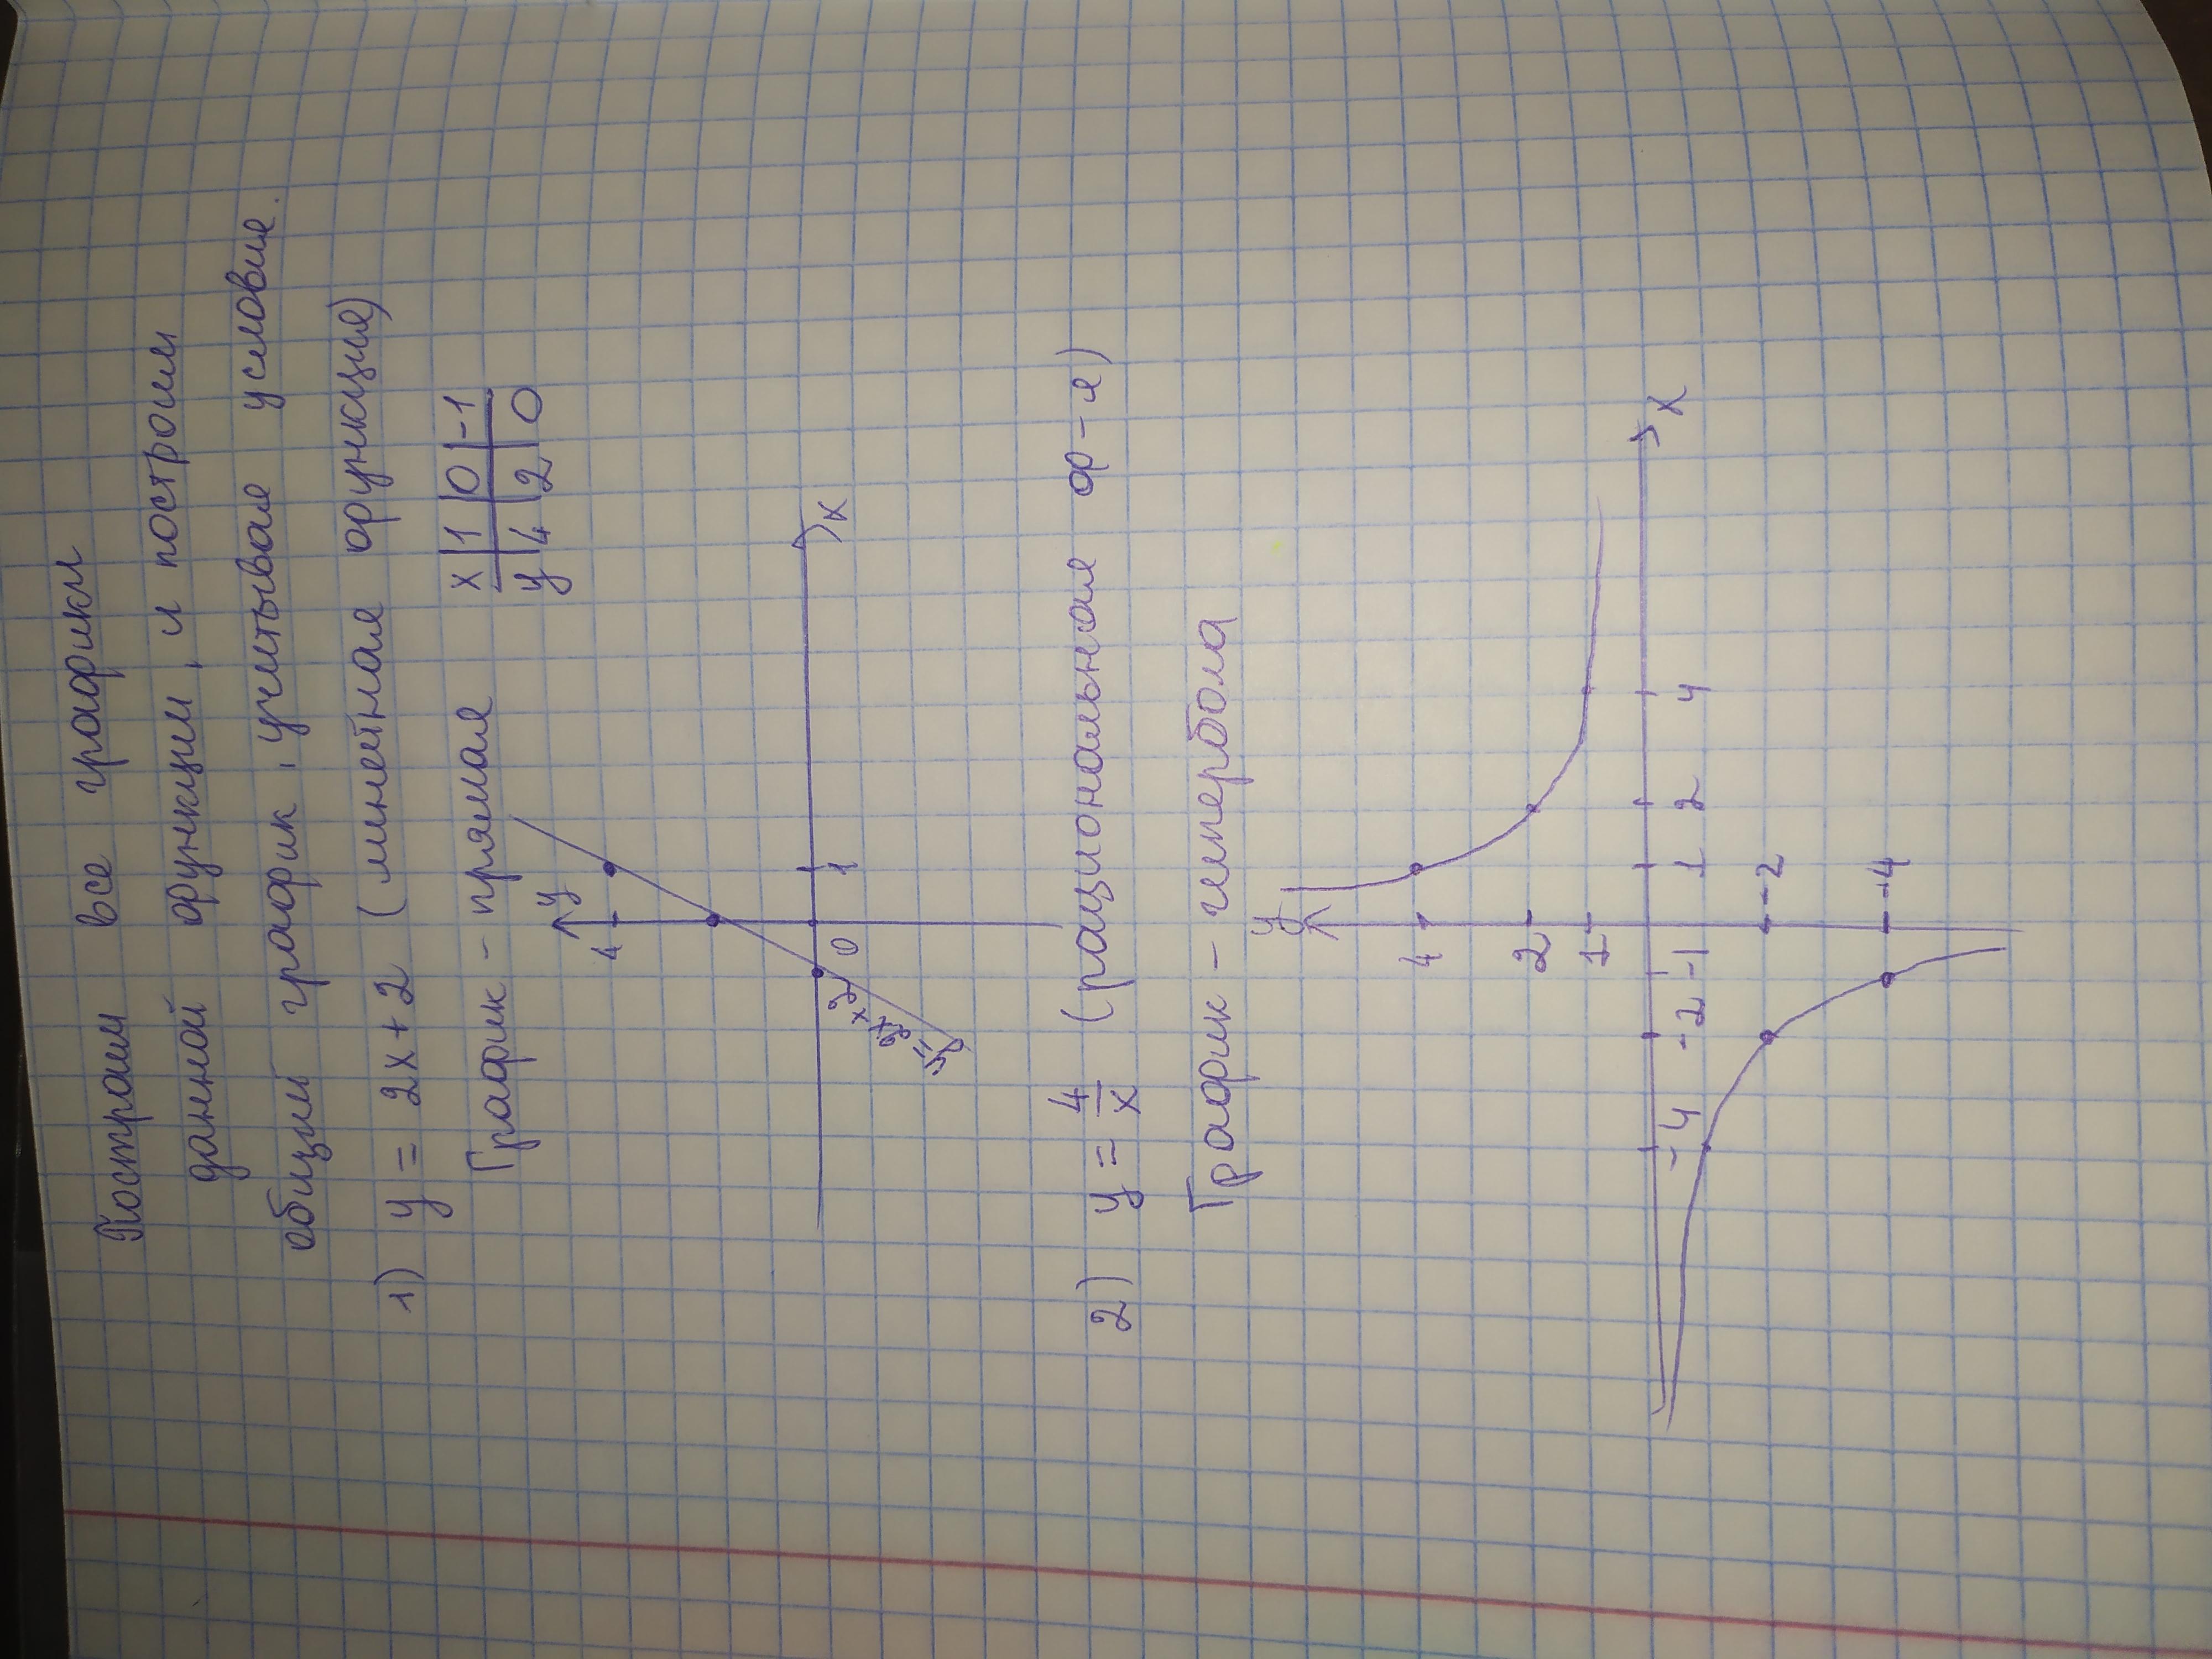 Построим все графики
данной функции, и построим
общий график, учитывая условие.
1) y = 2x+2 (линейная функция)
График - прямая
x | 1 | 0 | -1
y | 4 | 2 | 0
y
4
0 1 x
y=2x+2
2) y = 4/x (рациональная ф-я)
График - гипербола
y
4
2
1
-4 -2 -1 1 2 4 x
-2
-4